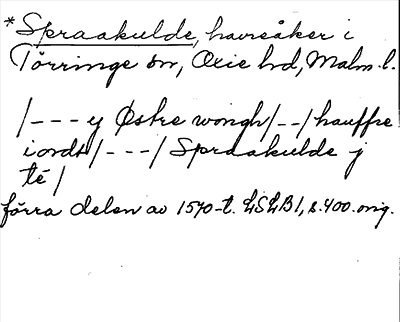 *Spraakulde, havreåker i
Törringe sn, Oxie hd, Malm. l.
/--- y Østre wongh/--/hauffre
iordt/---/Spraakulde j
té/
förra delen av 1570-t. LSLB1, s.400. orig.